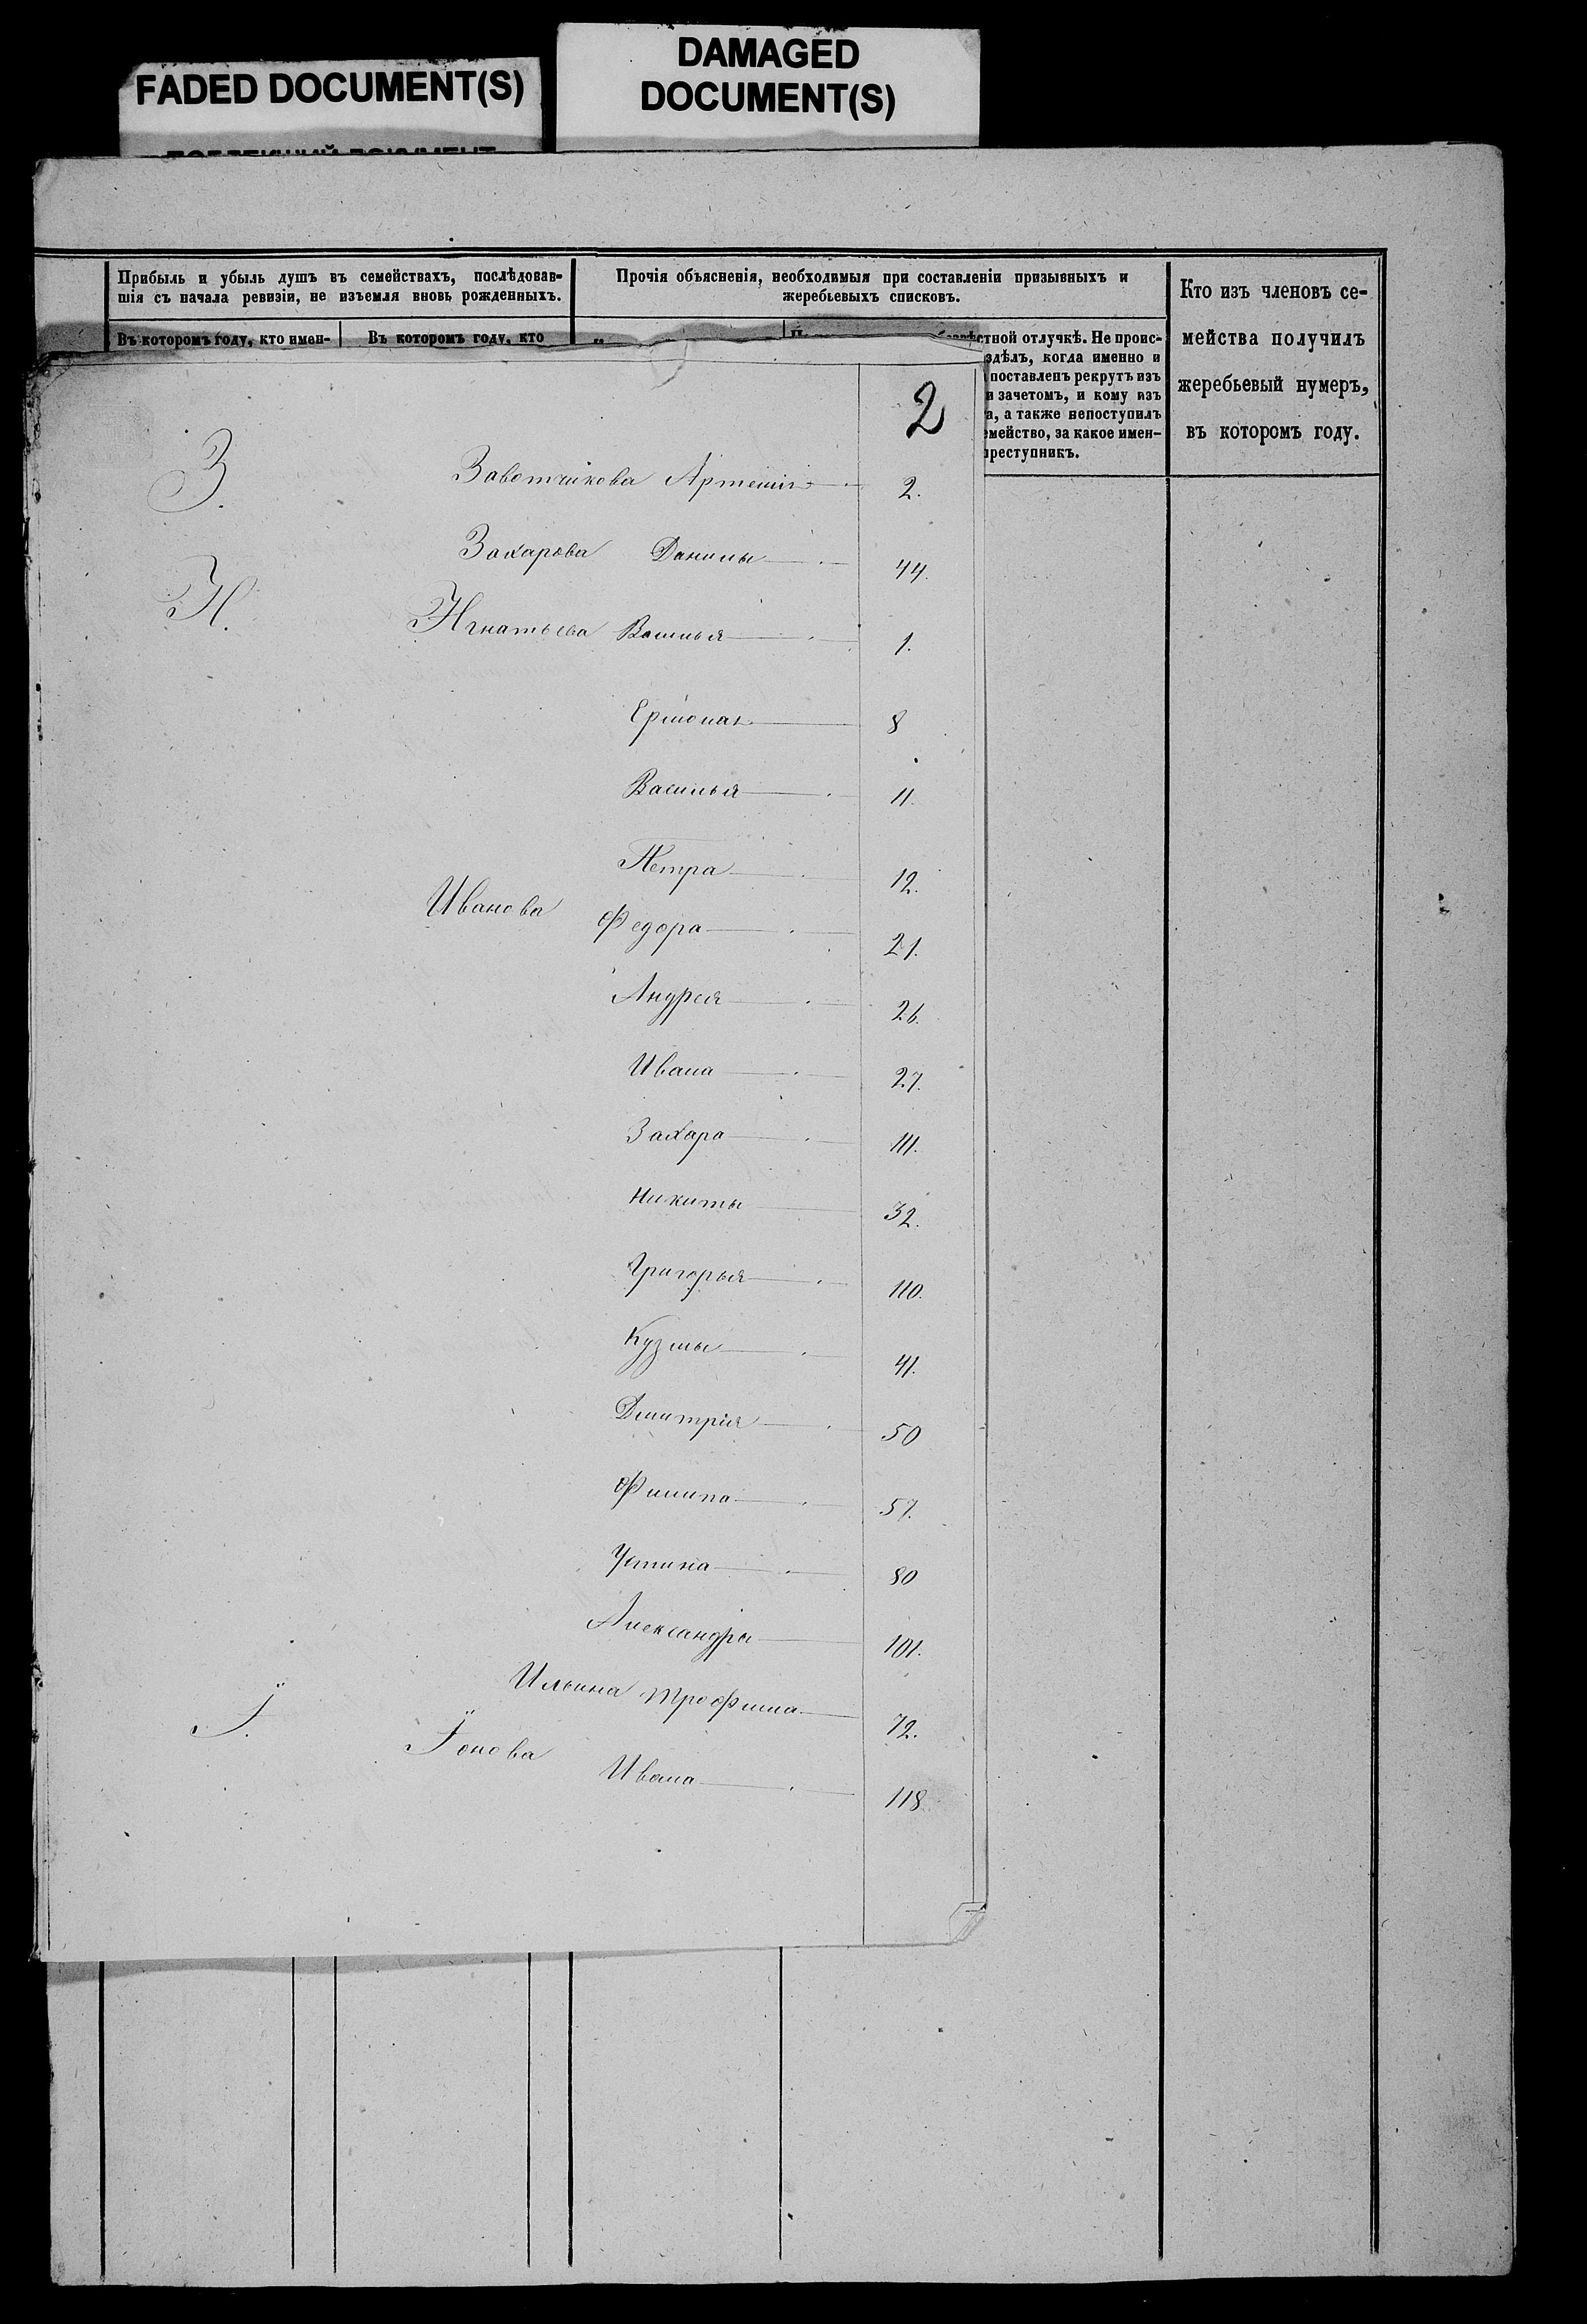 FADED DOCUMENT(S)
DAMAGED
DOCUMENT(S)
Прибыль и убыль душъ въ семействахъ, послѣдовав-
шія съ начала ревизіи, не изъемля вновь рожденныхъ.
Прочія объясненія, необходимыя при составленіи призывныхъ и
жеребьевыхъ списковъ.
Кто изъ членовъ се-
мейства получилъ
жеребьевый нумеръ,
въ которомъ году.
Въ которомъ году, кто имен-
Въ которомъ году, кто
стной отлучкѣ. Не проис-
здѣлъ, когда именно и
поставленъ рекрутъ изъ
и зачетомъ, и кому изъ
а, а также непоступилъ
емейство, за какое имен-
преступникъ.
2
З. Заботчикова Артемія 2.
Захарова Данилы 44.
И. Игнатьева Василья 1.
Ермолая 8
Василья 11.
Петра 12.
Иванова Федора 21.
Андрея 26.
Ивана 27.
Захара 111.
Никиты 32.
Григорья 110.
Кузмы 41.
Дмитрія 50
Филипа 57.
Устина 80
Александра 101.
Ильина Трофима 72.
Ї. Їонова Ивана 118